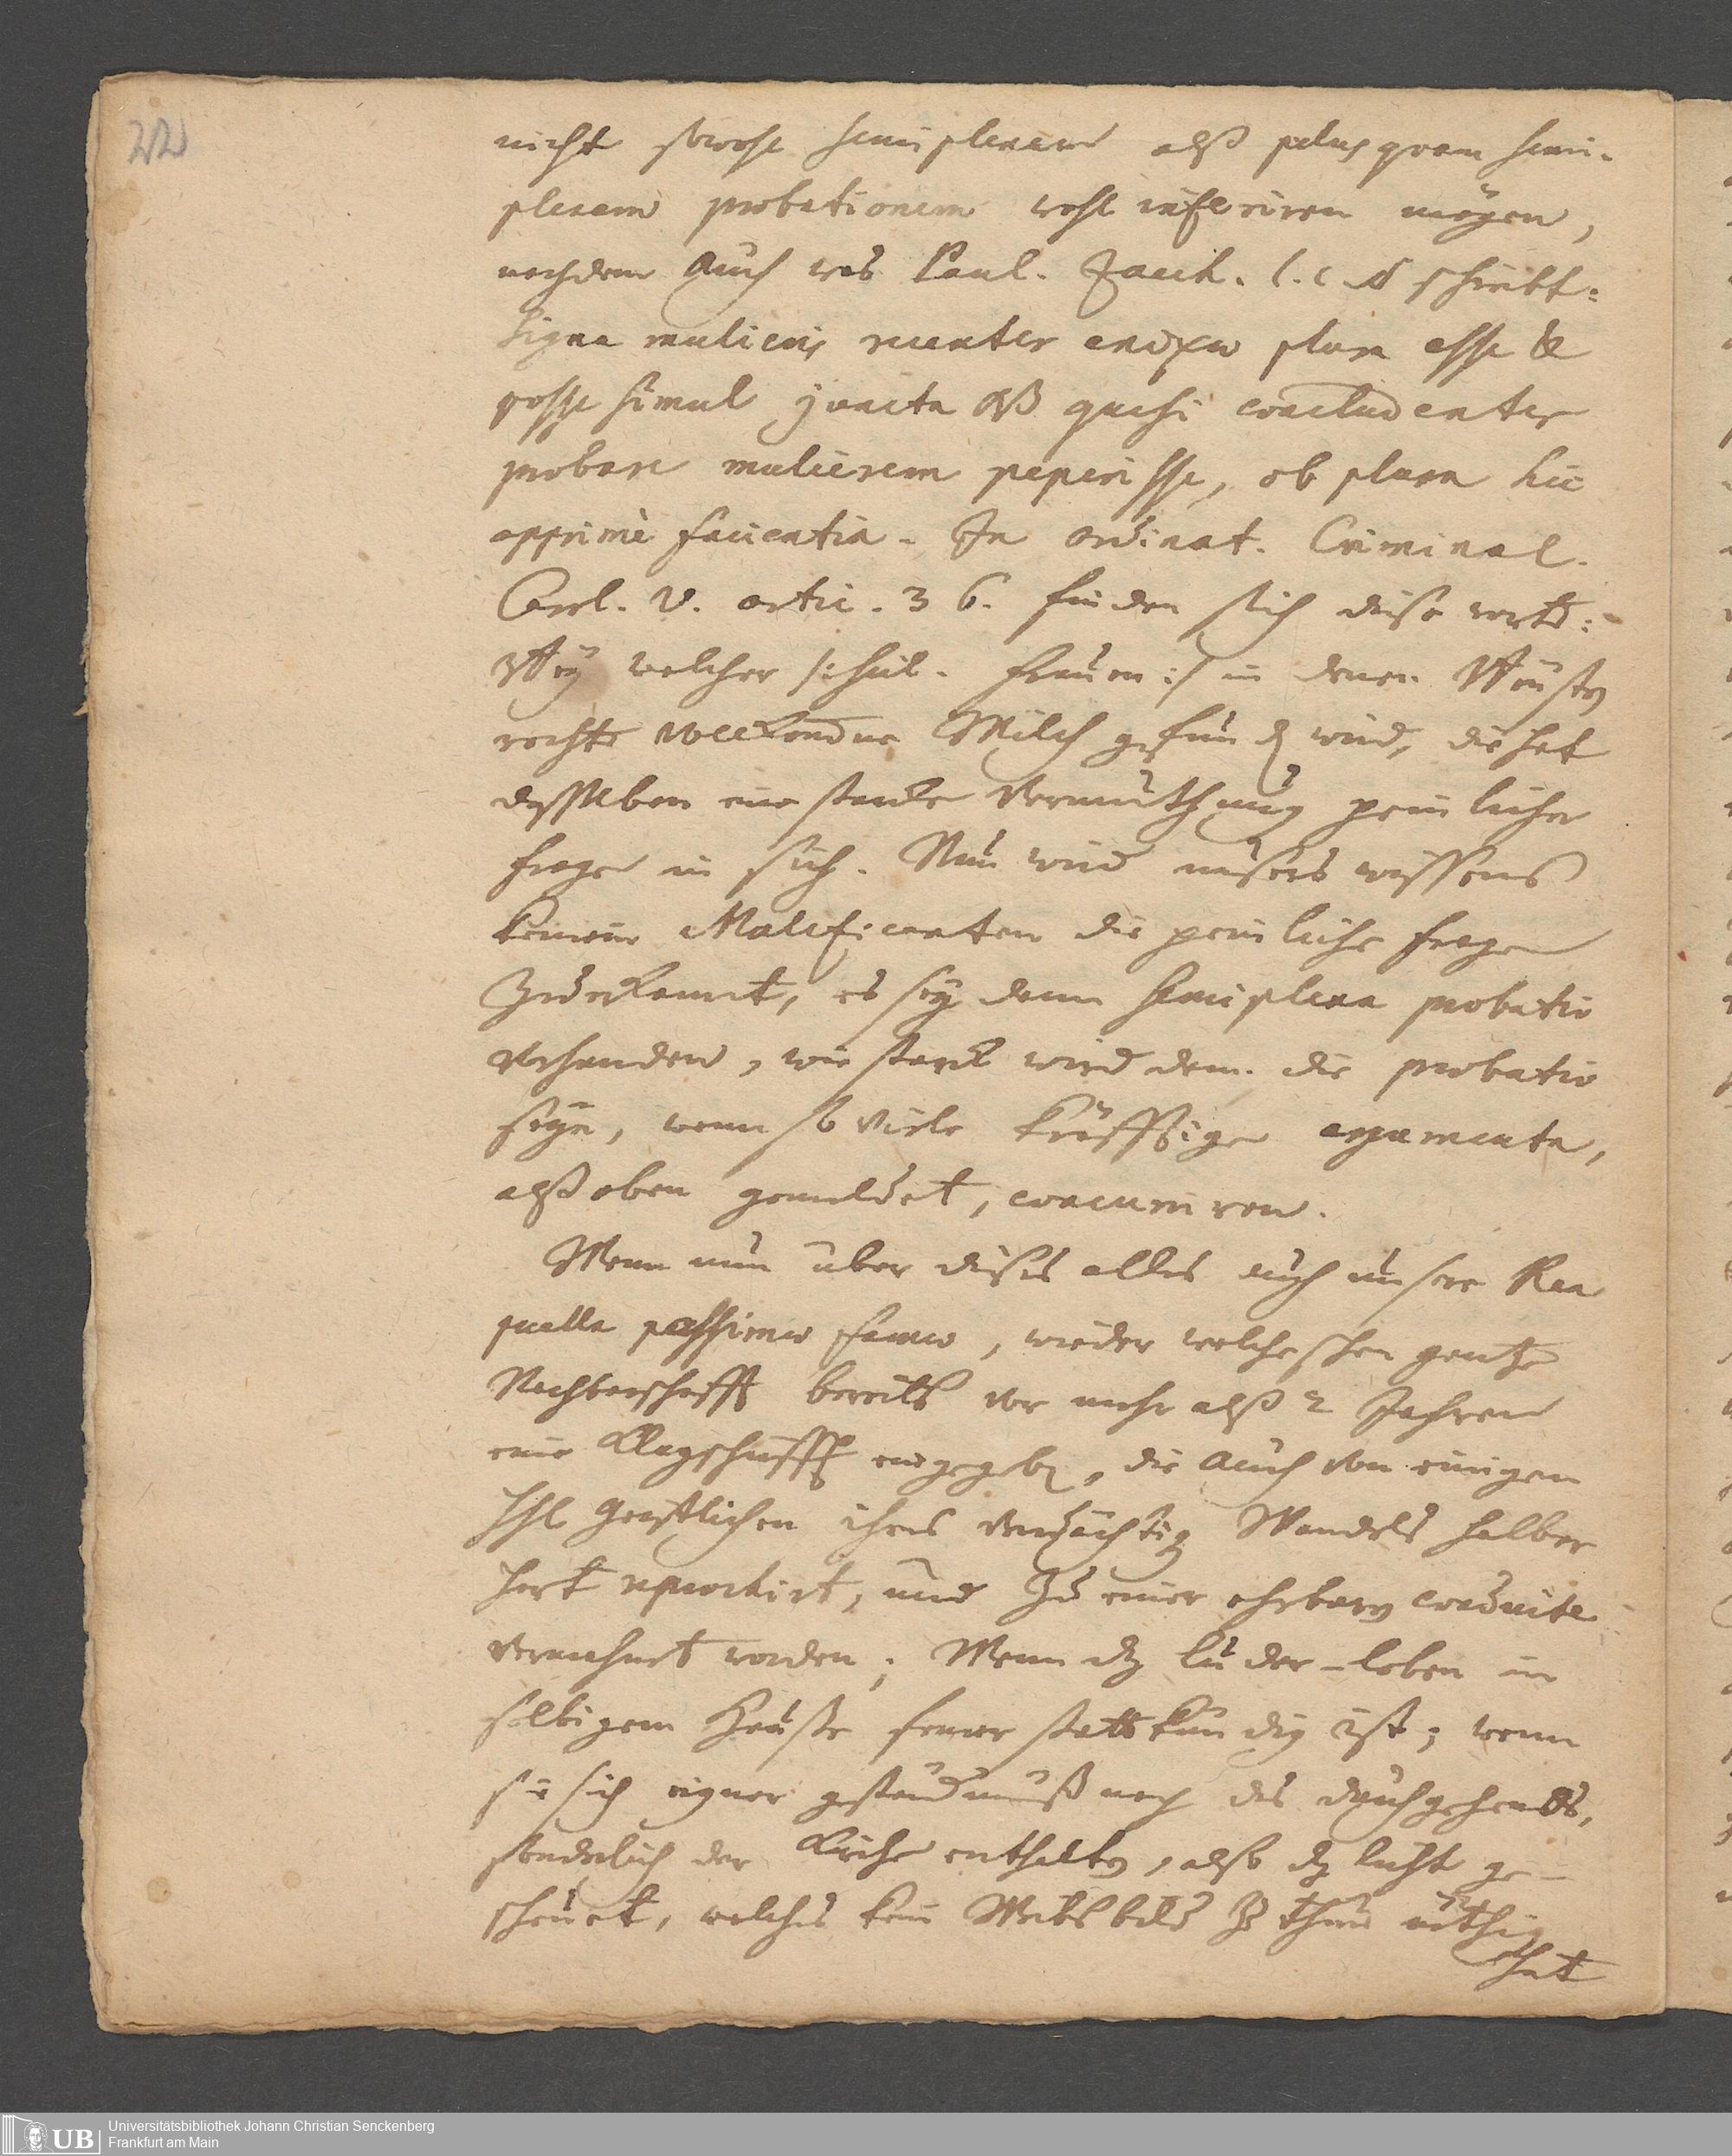 22
nicht sowohl semiplenam alß plus quam semi-
plenam probationem wohl inferiren mögen,
nachdem auch was Paul. Zacch. l. c. schreibt:
Signa mulieris recenter enixæ plura esse &
posse simul juncta quasi concludenter
probare mulierem peperisse, ob plura huc
apprimè facientia. In ordinat. Criminal.
Carl. V. artic. 36. finden sich diese wort:
Bey welcher /: scil. Frauen :/ in denen Brüsten
rechte vollkomne Milch gefunden wird, die hat
deßhalben eine starke Vermuthung peinlicher
frage in sich. Nun wird unsers wissens
keinem Maleficanten die peinliche frage
zuerkannt, es sey dann semiplena probatio
vorhanden, wie stark wird dann die probatio
seyn, wenn so viele kräfftige argumenta,
alß oben gemeldet, concurriren.
Wenn nun über dieses alles auch unsere Rea
puella pessimæ famæ, wieder welche schon gantze
Nachbarschafft bereits vor mehr alß 2 Jahren
eine Klagschrifft eingegeben, die auch von einigen
HH Geistlichen ihres verdächtigen Wandels halber
hart reprochirt, und zu einer ehrbaren conduite
vermahnet worden; Wenn das luder-leben in
selbigem Hause ferner stattkundig ist; wenn
sie sich eigner geständnuß nach des durchgehends,
sonderlich der Kirche enthalten, also das licht ge-
scheuet, welches kein Weibsbild zu thun nöthig
hat
Universitätsbibliothek Johann Christian Senckenberg
Frankfurt am Main
UB